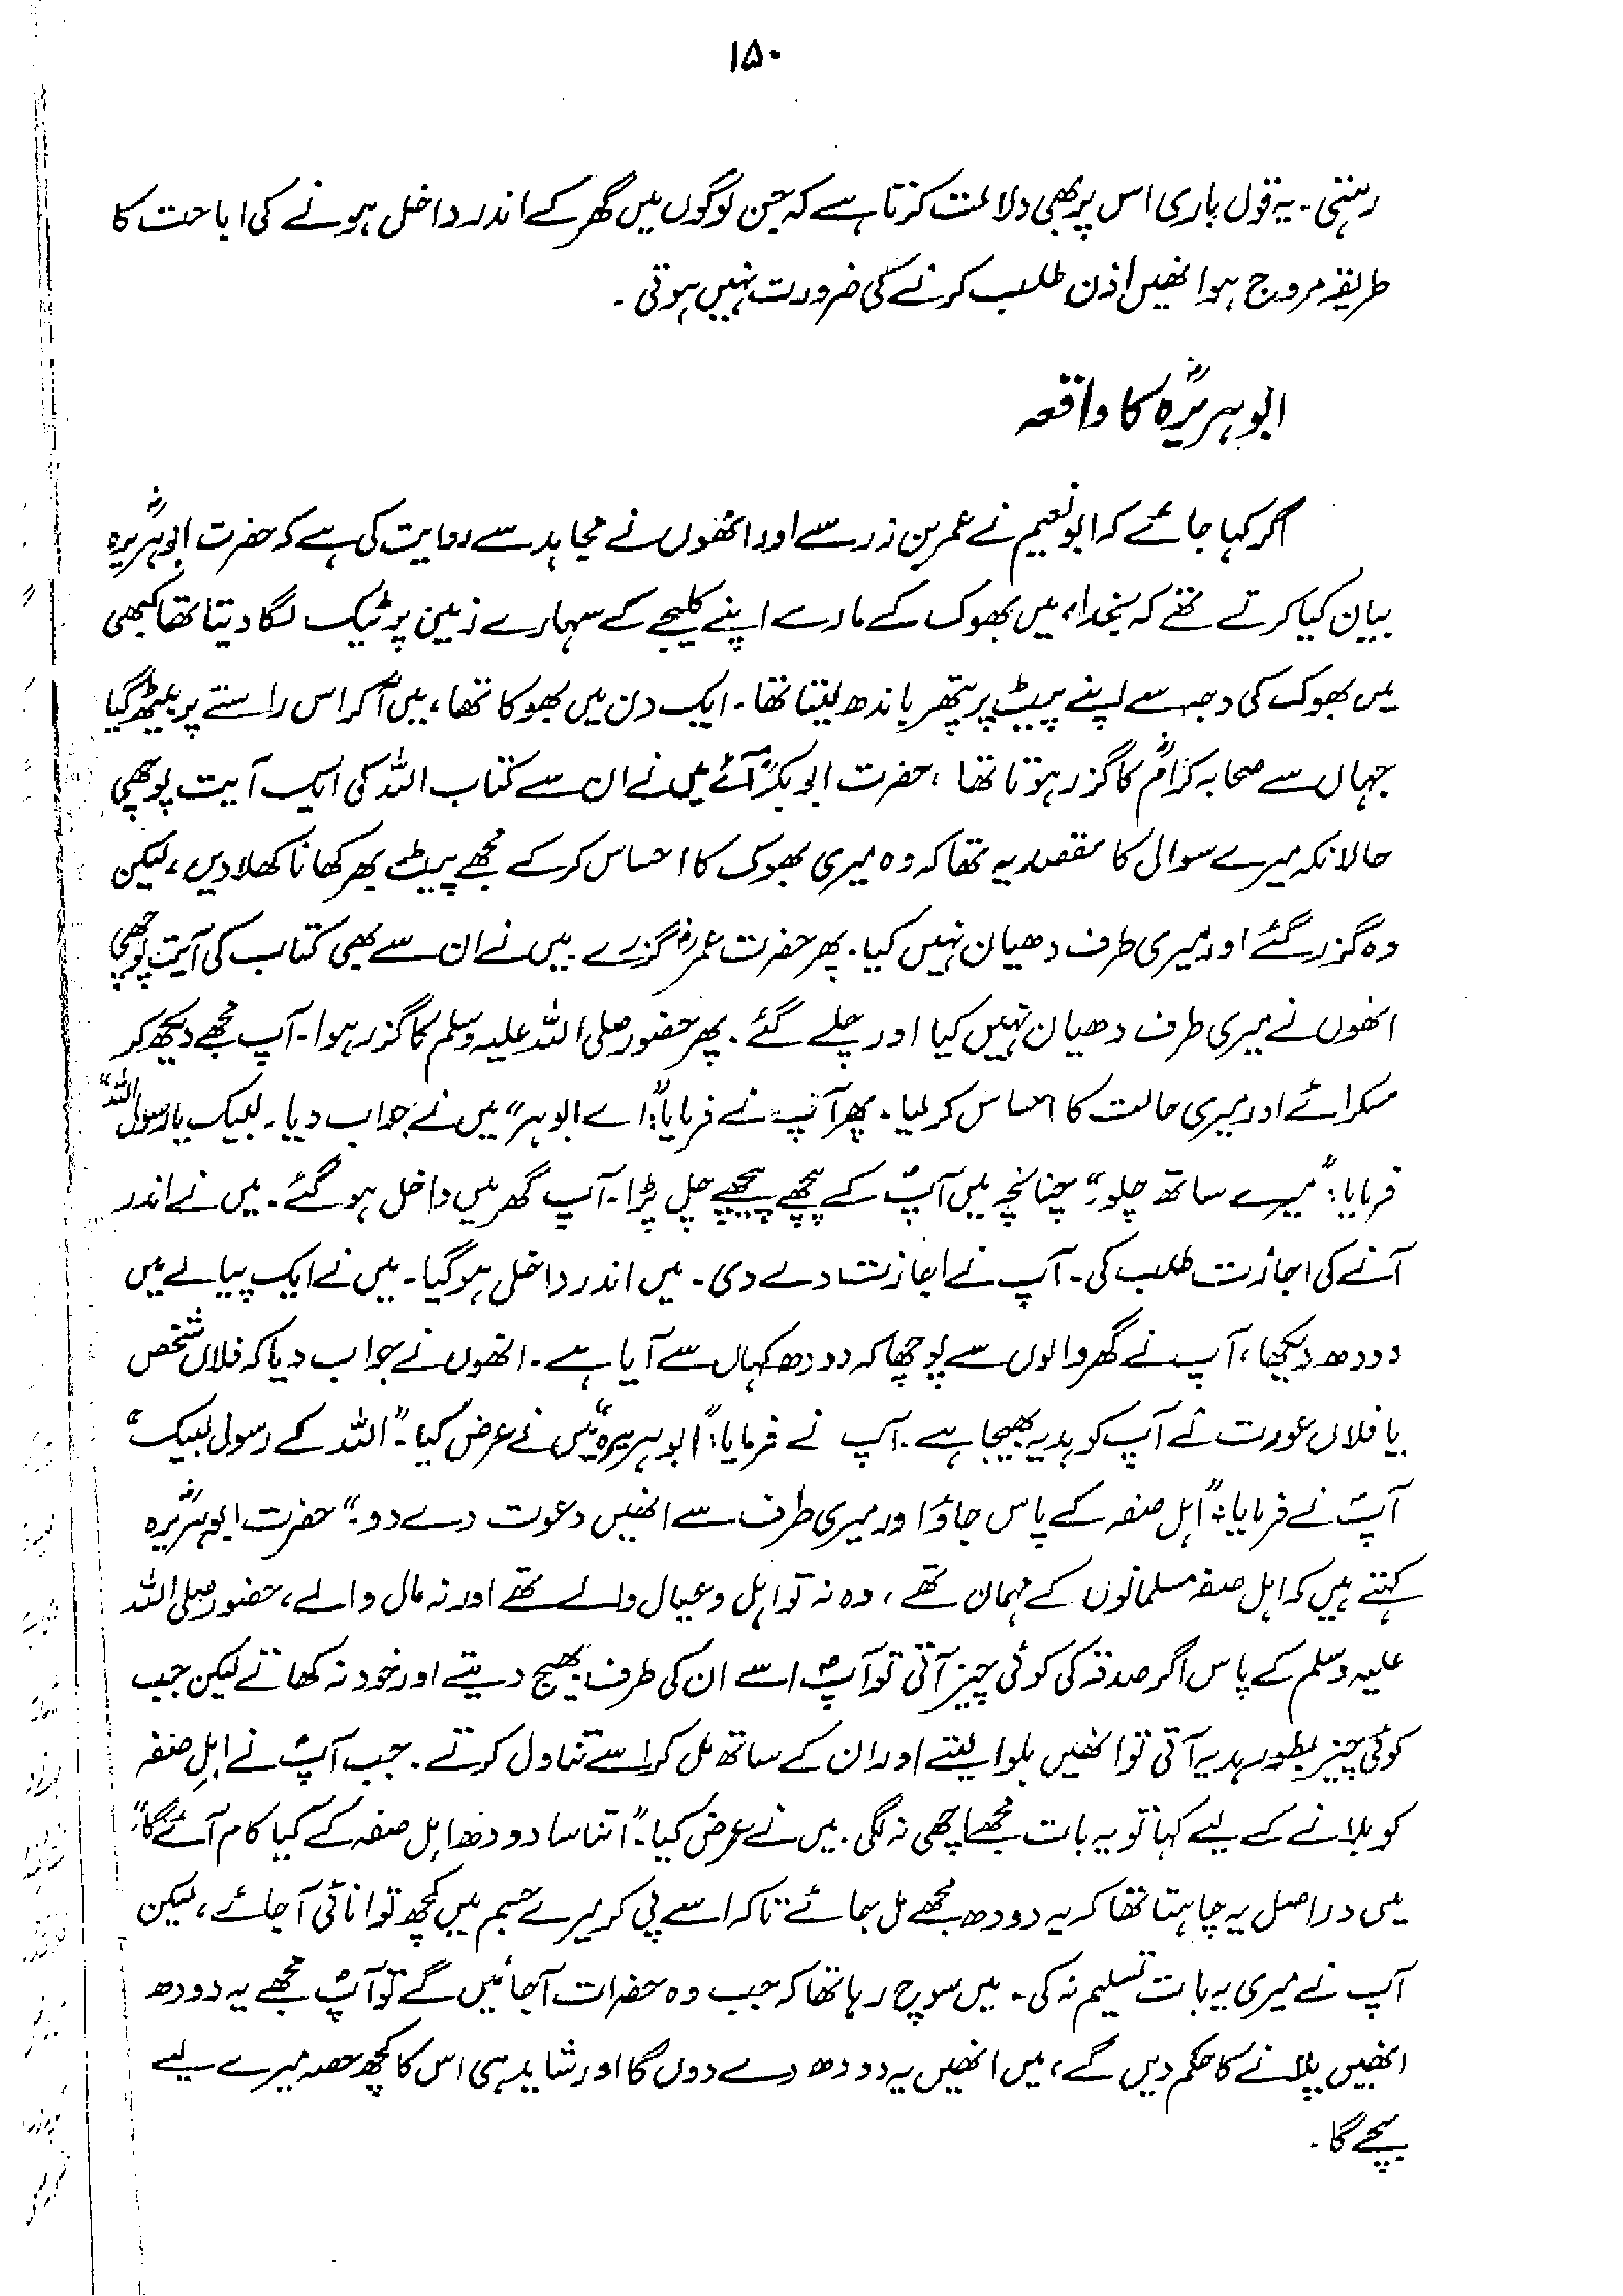 ۱۵۰
رہتی۔ یہ قول باری اس پر بھی دلالت کرتا ہے کہ جن لوگوں میں گھر کے اندر داخل ہونے کی اباحت کا
طریقہ مروج ہو انھیں اذن طلب کرنے کی ضرورت نہیں ہوتی۔
ابوہریرہؓ کا واقعہ
اگر کہا جائے کہ ابونعیم نے عمر بن ذر سے اور انھوں نے مجاہد سے روایت کی ہے کہ حضرت ابوہریرہؓ
بیان کیا کرتے تھے کہ بخدا، میں بھوک کے مارے اپنے کلیجے کے سہارے زمین پر ٹیک لگا دیتا تھا کبھی
میں بھوک کی وجہ سے اپنے پیٹ پر پتھر باندھ لیتا تھا۔ ایک دن میں بھوکا تھا، میں آ کر اس راستے پر بیٹھ گیا
جہاں سے صحابہ کرامؓ کا گزر ہوتا تھا، حضرت ابوبکرؓ آئے میں نے ان سے کتاب اللہ کی ایک آیت پوچھی
حالانکہ میرے سوال کا مقصد یہ تھا کہ وہ میری بھوک کا احساس کر کے مجھے پیٹ بھر کھانا کھلا دیں، لیکن
وہ گزر گئے اور میری طرف دھیان نہیں کیا۔ پھر حضرت عمرؓ گزرے میں نے ان سے بھی کتاب کی آیت پوچھی
انھوں نے میری طرف دھیان نہیں کیا اور چلے گئے۔ پھر حضور صلی اللہ علیہ وسلم کا گزر ہوا۔ آپ مجھے دیکھ کر
مسکرائے اور میری حالت کا احساس کر لیا۔ پھر آپ نے فرمایا: "اے ابوہر" میں نے جواب دیا۔ لبیک یا رسول اللہ"
فرمایا: "میرے ساتھ چلو" چنانچہ میں آپؐ کے پیچھے پیچھے چل پڑا۔ آپ گھر میں داخل ہو گئے۔ میں نے اندر
آنے کی اجازت طلب کی۔ آپ نے اجازت دے دی۔ میں اندر داخل ہو گیا۔ میں نے ایک پیالے میں
دودھ دیکھا، آپ نے گھر والوں سے پوچھا کہ دودھ کہاں سے آیا ہے۔ انھوں نے جواب دیا کہ فلاں شخص
یا فلاں عورت نے آپ کو ہدیہ بھیجا ہے۔ آپ نے فرمایا: "ابوہریرہ" میں نے عرض کیا۔ "اللہ کے رسول لبیک"
آپؐ نے فرمایا: "اہل صفہ کے پاس جاؤ اور میری طرف سے انھیں دعوت دے دو۔" حضرت ابوہریرہؓ
کہتے ہیں کہ اہل صفہ مسلمانوں کے مہمان تھے، وہ نہ تو اہل و عیال والے تھے اور نہ مال والے، حضور صلی اللہ
علیہ وسلم کے پاس اگر صدقہ کی کوئی چیز آتی تو آپؐ اسے ان کی طرف بھیج دیتے اور خود نہ کھاتے لیکن جب
کوئی چیز بطور ہدیہ آتی تو انھیں بلوا لیتے اور ان کے ساتھ مل کر اسے تناول کرتے۔ جب آپؐ نے اہل صفہ
کو بلانے کے لیے کہا تو یہ بات مجھے اچھی نہ لگی۔ میں نے عرض کیا۔ "اتنا سا دودھ اہل صفہ کے کیا کام آئے گا"
میں دراصل یہ چاہتا تھا کہ یہ دودھ مجھے مل جائے تاکہ اسے پی کر میرے جسم میں کچھ توانائی آ جائے، لیکن
آپ نے میری یہ بات تسلیم نہ کی۔ میں سوچ رہا تھا کہ جب وہ حضرات آ جائیں گے تو آپؐ مجھے یہ دودھ
انھیں پلانے کا حکم دیں گے، میں انھیں یہ دودھ دے دوں گا اور شاید ہی اس کا کچھ حصہ میرے لیے
بچے گا۔